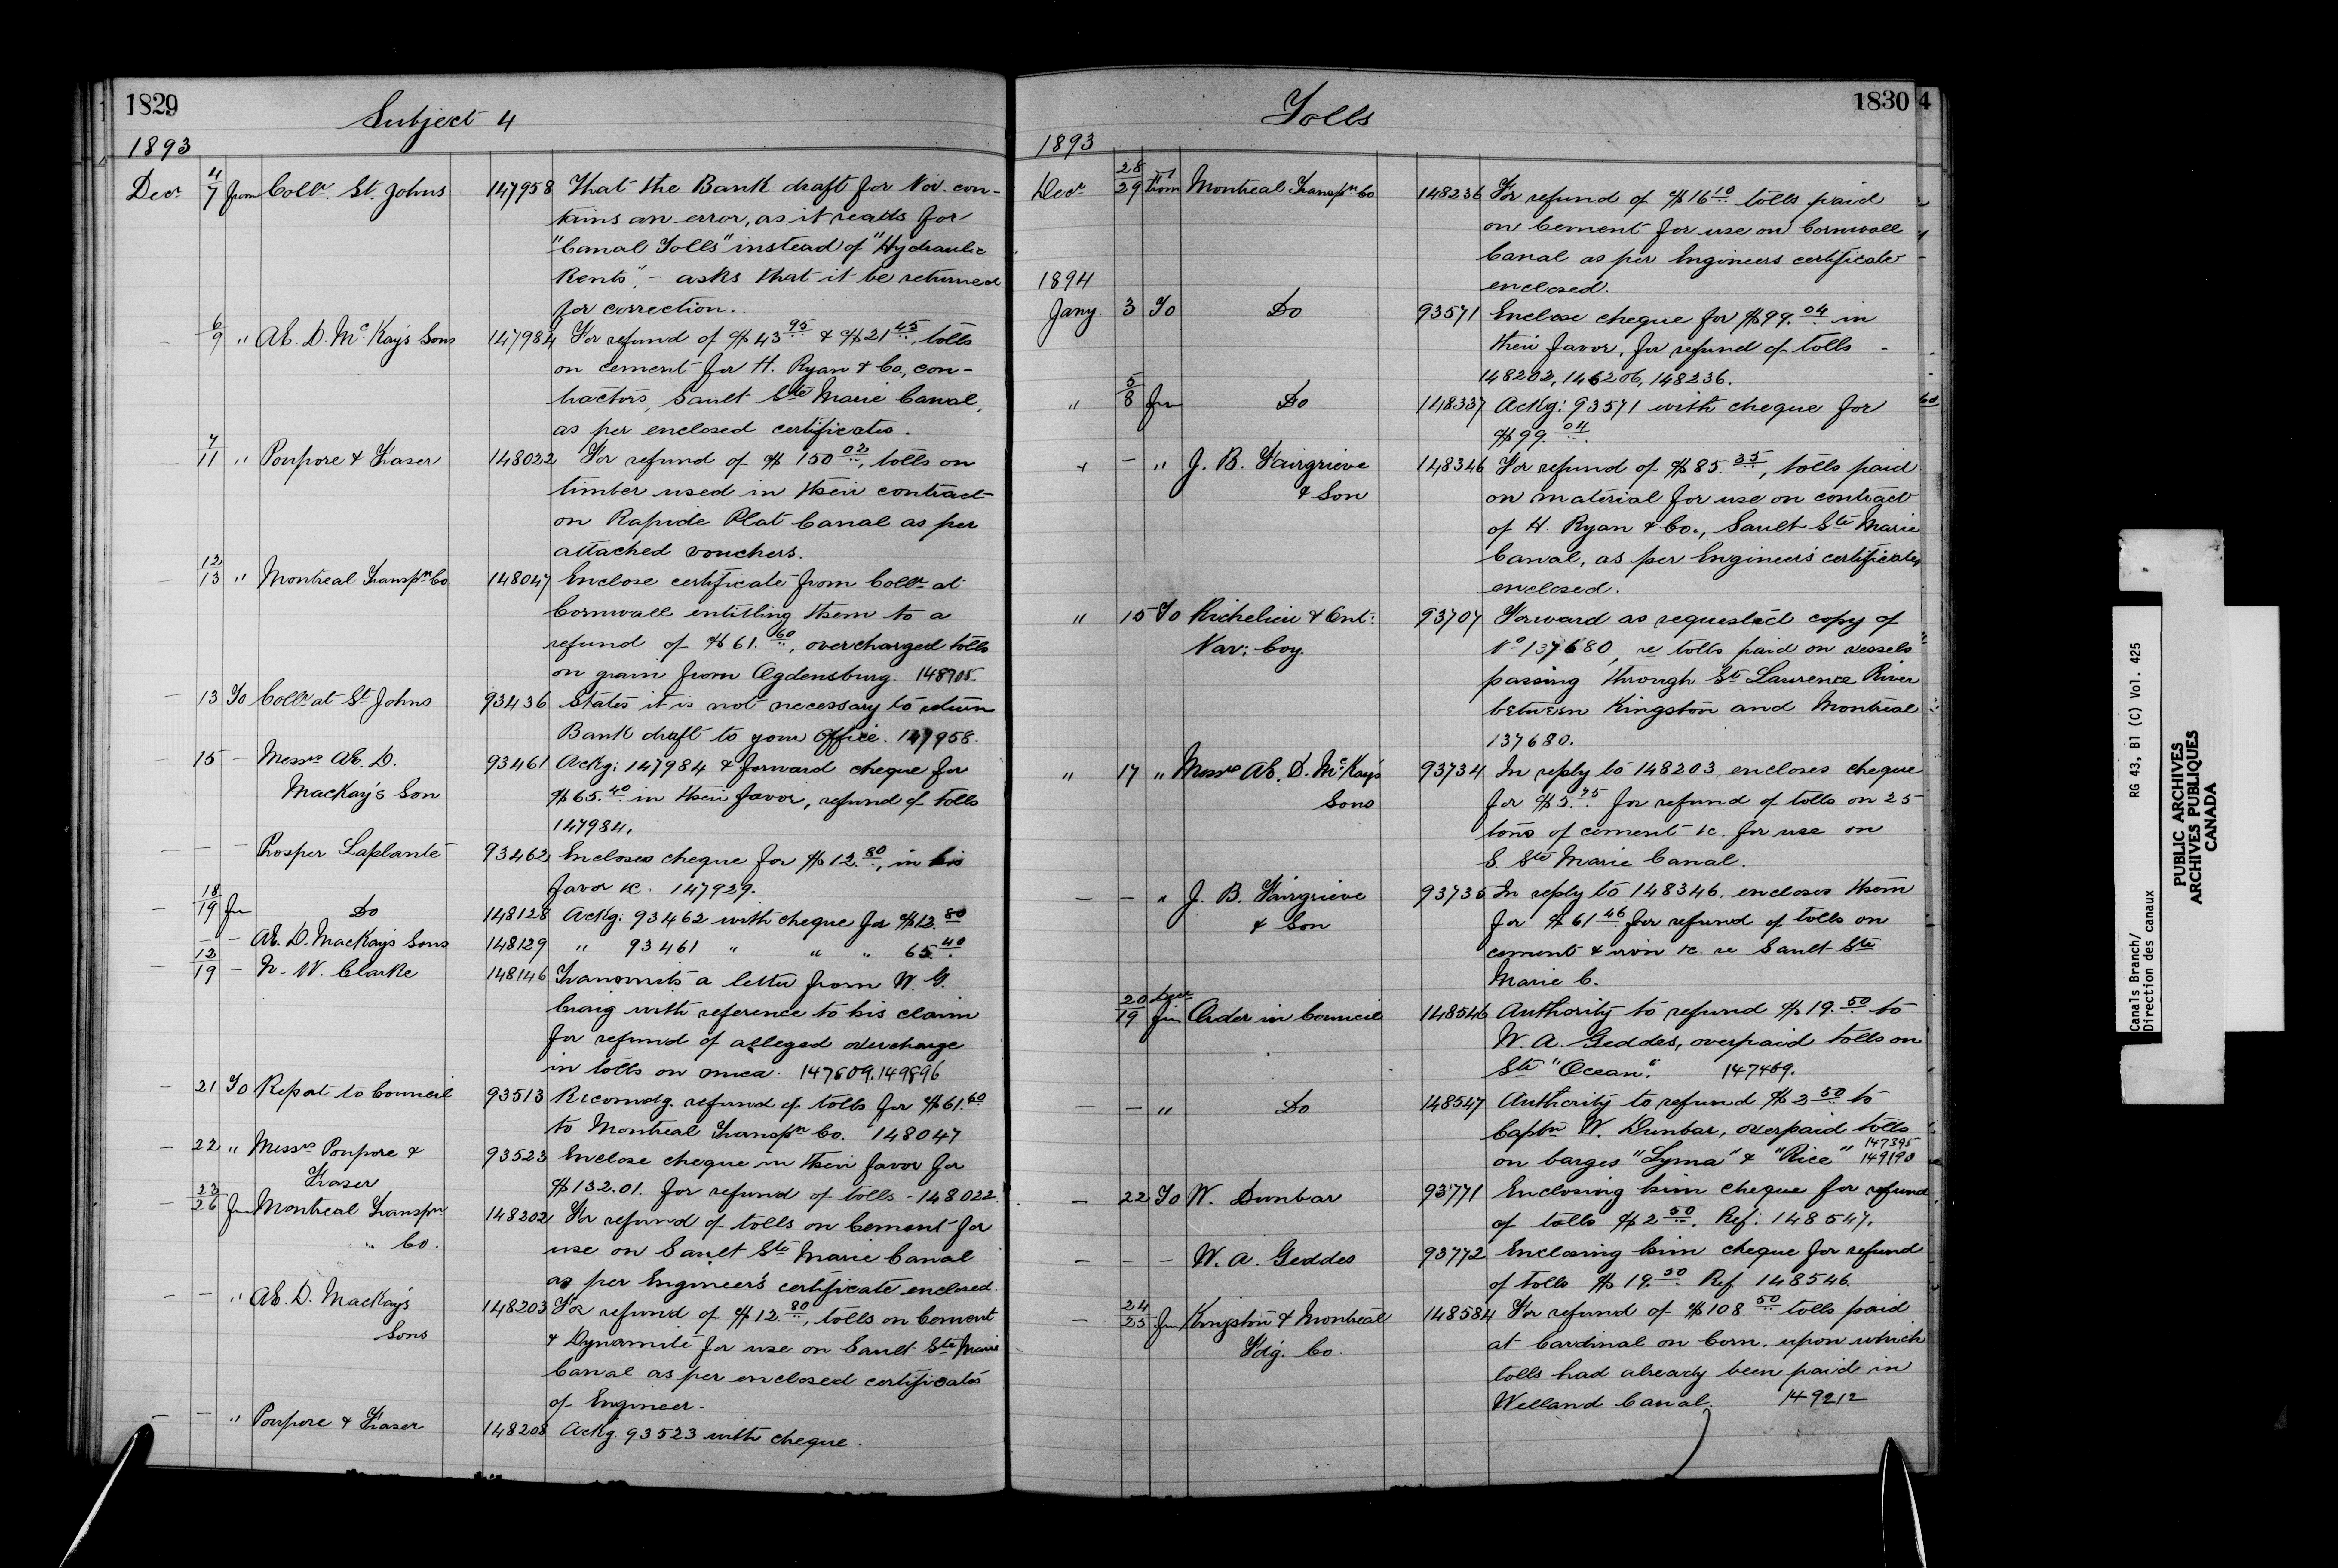 1829
Subject 4
1893
Decr 4/7 from Collr. St. Johns 147958 That the Bank draft for Nov. con-
tains an error, as it reads for
"Canal Tolls" instead of "Hydraulic
Rents", - asks that it be returned
for correction.
6/9 " AE. D. McKay's Sons 147984 For refund of $43.95 & $21.45, tolls
on cement for H. Ryan & Co., con-
tractors, Sault Ste Marie Canal,
as per enclosed certificates.
7/11 " Poupore & Fraser 148022 For refund of $150.02, tolls on
timber used in their contract
on Rapide Plat Canal as per
attached vouchers.
12/13 " Montreal Transpn Co 148047 Enclose certificate from Collr at
Cornwall entitling them to a
refund of $61.60, overcharged tolls
on grain from Ogdensburg. 148705.
- 13 To Collr at St Johns 93436 States it is not necessary to return
Bank draft to your Office. 147958.
- 15 - Messrs AE. D. 93461 Ackg: 147984 & forward cheque for
MacKay's Son $65.40 in their favor, refund of tolls
147984.
- - - Prosper Laplante 93462 Encloses cheque for $12.80, in his
favor &c. 147929.
- 18/19 fm Do 148128 Ackg: 93462 with cheque for $12.80
- - AE. D. MacKay's Sons 148129 " 93461 " " " 65.40
- 12/19 - N. W. Clarke 148146 Transmits a letter from W. G.
Craig with reference to his claim
for refund of alleged overcharge
in tolls on mica. 147609. 149896
- 21 To Report to Council 93513 Recomdg. refund of tolls for $61.60
to Montreal Transpn Co. 148047
- 22 " Messrs Poupore & 93523 Enclose cheque in their favor for
Fraser $132.01. for refund of tolls - 148022.
- 23/26 fm Montreal Transpn 148202 For refund of tolls on Cement for
" Co. use on Sault Ste Marie Canal
as per Engineer's certificate enclosed.
- - " AE. D. MacKay's 148203 For refund of $12.80, tolls on Cement
Sons & Dynamite for use on Sault Ste Marie
Canal as per enclosed certificates
of Engineer.
- - " Poupore & Fraser 148208 Ackg. 93523 with cheque.
Tolls
1830
4
1893
Decr 28/29 from Montreal Transpn Co 148236 For refund of $16.10 tolls paid
on Cement for use on Cornwall
Canal as per Engineers certificate
enclosed.
1894
Jany. 3 To Do 93571 Enclose cheque for $99.04 in
their favor, for refund of tolls -
148202, 146206, 148236.
" 5/8 fm Do 148337 Ackg: 93571 with cheque for
$99.04.
" - " J. B. Fairgrieve 148346 For refund of $85.35, tolls paid
& Son on material for use on contract
of H. Ryan & Co., Sault Ste Marie
Canal, as per Engineer's certificates
enclosed.
" 15 To Richelieu & Ont: 93707 Forward as requested copy of
Nav: Coy. No 137680, re tolls paid on vessels
passing through St Lawrence River
between Kingston and Montreal
137680.
" 17 " Messrs AE. D. McKay's 93734 In reply to 148203, encloses cheque
Sons for $5.75 for refund of tolls on 25
tons of cement &c. for use on
S. Ste Marie Canal.
- - " J. B. Fairgrieve 93735 In reply to 148346, encloses them
& Son for $61.46 for refund of tolls on
cement & iron &c. re Sault Ste
Marie C.
20/19 Decr fm Order in Council 148546 Authority to refund $19.50 to
W. A. Geddes, overpaid tolls on
Str "Ocean". 147469.
- - " Do 148547 Authority to refund $2.50 to
Captn W. Dunbar, overpaid tolls
on barges "Lyma" & "Rice" 147395
149190
- 22 To W. Dunbar 93771 Enclosing him cheque for refund
of tolls $2.50. Ref: 148547.
- - - W. A. Geddes 93772 Enclosing him cheque for refund
of tolls $19.50 Ref 148546.
- 24/25 fm Kingston & Montreal 148584 For refund of $108.50 tolls paid
Fdg. Co. at Cardinal on Corn, upon which
tolls had already been paid in
Welland Canal. 149212
Canals Branch/
Direction des canaux
RG 43, B1 (C) Vol. 425
PUBLIC ARCHIVES
ARCHIVES PUBLIQUES
CANADA